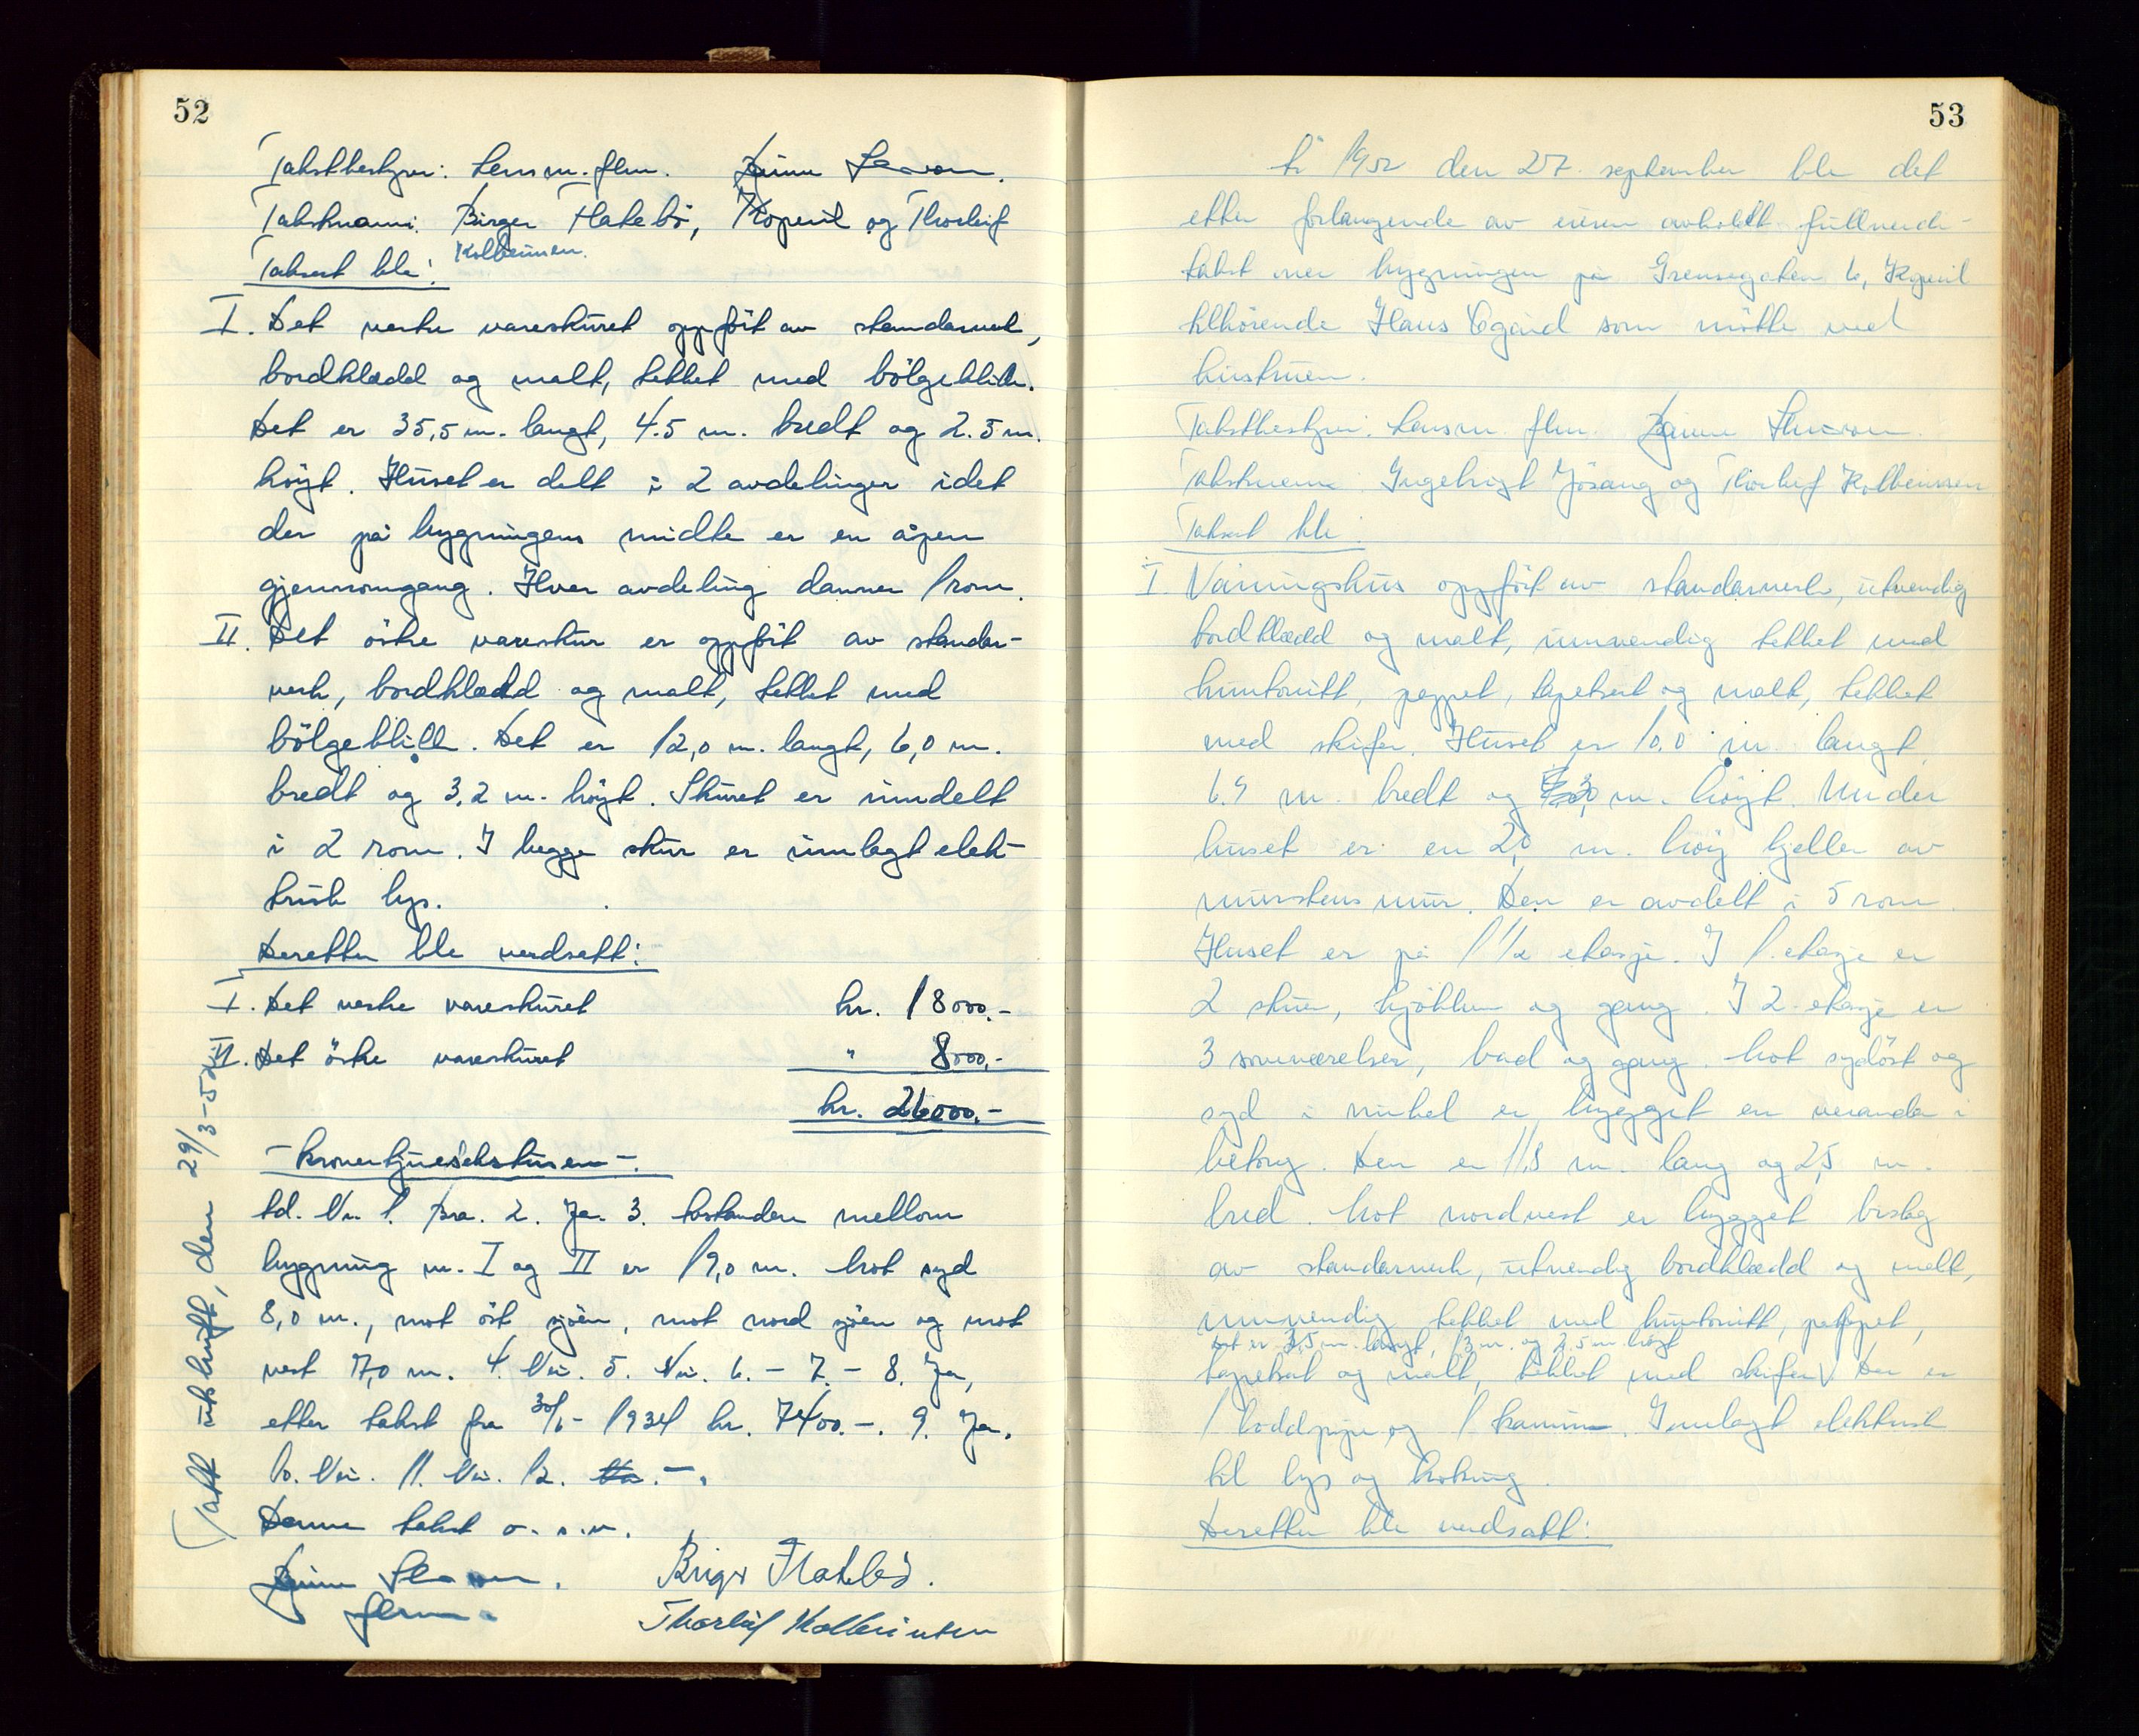 52
Takstbestyrer: Lensm.flm.
Takstmenn: Birger Flatebø, Kopervik og Thorleif
Kolbeinsen.
Taksert ble:
I. Det vestre vareskuret oppført av standerverk,
bordklædd og malt, tekket med bølgeblikk.
Det er 35,5 m. langt, 4.5 m. bredt og 2.5 m.
høyt. Huset er delt i 2 avdelinger idet
der på bygningens midte er en åpen
gjennomgang. Hver avdeling danner 1 rom.
II. Det östre vareskur er oppført av stander-
verk, bordklædd og malt, tekket med
bölgeblikk. Det er 12,0 m. langt, 6,0 m.
bredt og 3,2 m. høyt. Skuret er inndelt
i 2 rom. I begge skur er innlagt elek-
trisk lys.
Deretter ble verdsatt:
I. Det vestre vareskuret kr. 18000.-
II. Det östre vareskuret " 8000.-
kr. 26000.-
- Kronertjuesekstusen -.
Ad. Nr. 1. Bra. 2. Ja. 3. Avstanden mellom
bygning nr. I og II er 19,0 m. Mot syd
8,0 m., mot öst sjöen, mot nord sjöen og mot
vest 17,0 m. 4. Nei. 5. Nei. 6. - 7. - 8. Ja,
etter takst fra 30/6- 1934 kr. 7400.-. 9. Ja.
10. Nei. 11. Nei. 12. -.
Denne takst o.s.v.
Birger Flatebø.
flm.
Thorleif Kolbeinsen
Tatt utskrift, den 29/3-52
53
År 1952 den 27. september ble det
etter forlangende av eieren avholdt fullverdi-
takst over bygningen på Grensegaten 6, Kopervik
tilhörende Hans Ögaid som mötte ved
hustruen.
Takstbestyrer: Lensm. flm.
Takstmenn: Ingebrigt Jösang og Thorleif Kolbeinsen
Taksert ble:
I. Våningshus oppfört av standerverk, utvendig
bordklædd og malt, innvendig tekket med
huntonitt, pappet, tapetsert og malt, tekket
med skifer. Huset er 10.0 m. langt,
6.9 m. bredt og m. høyt. Under
huset er en 2,0 m. høy kjeller av
murstens mur. Den er avdelt i 5 rom.
Huset er på 1 1/2 etasje. I 1. etasje er
2 stuer, kjökken og gang. I 2. etasje er
3 soveværelser, bad og gang. Mot sydöst og
syd i vinkel er bygget en veranda i
betong. Den er 11,8 m. lang og 2,5 m.
bred. Mot nordvest er bygget bislag
av standerverk, utvendig bordklædd og malt,
innvendig tekket med huntonitt, pappet,
Det er 3,5 m. langt, 1,3 m. og 2,5 m. høyt
tapetsert og malt, tekket med skifer V Der er
1 loddpipe og 1 kamin. Innlagt elektrisk
til lys og koking.
Deretter ble verdsatt: